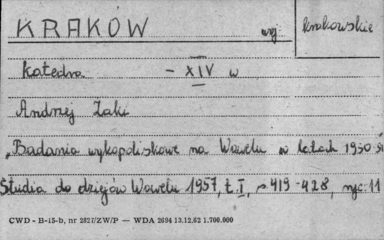 KRAKÓW woj. krakowskie
Katedra - XIV w
Andrzej Żaki
"Badania wykopaliskowe na Wawelu w latach 1950
Studia do dziejów Wawelu 1957, t. I, s 419-428, ryc. 11
CWD - B-15-b, nr 2827/ZW/P — WDA 2694 13.12.62 1.700.000